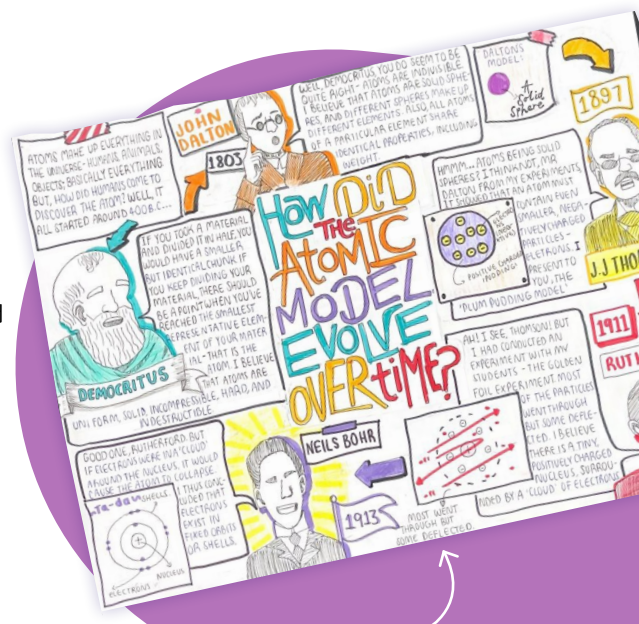 ATOMS MAKE UP EVERYTHING IN
THE UNIVERSE - HUMANS, ANIMALS,
OBJECTS; BASICALLY EVERYTHING
BUT, HOW DID HUMANS COME TO
DISCOVER THE ATOM? WELL, IT
ALL STARTED AROUND 400 B.C...
JOHN
DALTON
1803
WELL, DEMOCRITUS, YOU DO SEEM TO BE
QUITE RIGHT - ATOMS ARE INDIVISIBLE
I BELIEVE THAT ATOMS ARE SOLID SPHE-
RES, AND DIFFERENT SPHERES MAKE UP
DIFFERENT ELEMENTS. ALSO, ALL ATOMS
OF A PARTICULAR ELEMENT SHARE
IDENTICAL PROPERTIES, INCLUDING
WEIGHT.
DALTON'S
MODEL:
A
Solid
Sphere
1897
IF YOU TOOK A MATERIAL
AND DIVIDED IT IN HALF, YOU
WOULD HAVE A SMALLER
BUT IDENTICAL CHUNK. IF
YOU KEEP DIVIDING YOUR
MATERIAL, THERE SHOULD
BE A POINT WHEN YOU'VE
REACHED THE SMALLEST
REPRESENTATIVE ELEM-
ENT OF YOUR MATER
IAL - THAT IS THE
ATOM. I BELIEVE
THAT ATOMS ARE
UNIFORM, SOLID, INCOMPRESSIBLE, HARD, AND
INDESTRUCTIBLE
DEMOCRITUS
HOW DiD
THE
AtoMIC
MODEL
EVOLVE
OVER tiME?
HMMM... ATOMS BEING SOLID
SPHERES? I THINK NOT, MR
DALTON. FROM MY EXPERIMENTS,
IT SHOWED THAT AN ATOM MUST
CONTAIN EVEN
SMALLER, NEGA-
TIVELY CHARGED
PARTICLES -
ELETRONS. I
PRESENT TO
YOU, THE
"PLUM PUDDING MODEL"
POSITIVE CHARGED
PUDDING
J.J THO
1911
RUT
AH! I SEE, THOMSON! BUT
I HAD CONDUCTED AN
EXPERIMENT WITH MY
STUDENTS - THE GOLDEN
FOIL EXPERIMENT. MOST
OF THE PARTICLES
WENT THROUGH
BUT SOME DEFLE-
CTED. I BELIEVE
THERE IS A TINY,
POSITIVELY CHARGED
NUCLEUS, SURROU-
NDED BY A 'CLOUD' OF ELECTRONS
MOST WENT
THROUGH BUT
SOME DEFLECTED
NEILS BOHR
1913
GOOD ONE, RUTHERFORD. BUT
IF ELECTRONS WERE IN A 'CLOUD'
AROUND THE NUCLEUS, IT WOULD
CAUSE THE ATOMS TO COLLAPSE
I THUS CONC-
LUDED THAT
ELECTRONS
EXIST IN
FIXED ORBITS
OR SHELLS.
Ta-dau
SHELLS
NUCLEUS
ELECTRONS